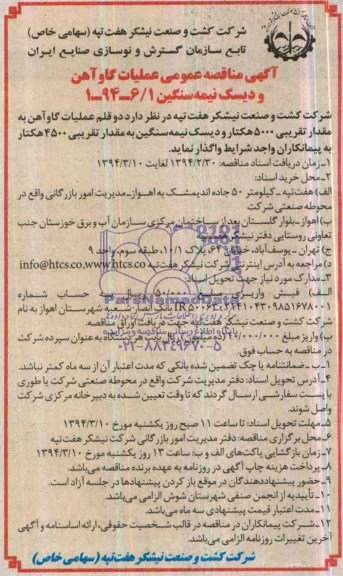 شرکت کشت و صنعت نیشکر هفت تپه (سهامی خاص)
تابع سازمان گسترش و نوسازی صنایع ایران
آگهی مناقصه عمومی عملیات گاوآهن
و دیسک نیمه‌سنگین ۶/۱-۹۴-۱
شرکت کشت و صنعت نیشکر هفت تپه در نظر دارد دو قلم عملیات گاوآهن به
مقدار تقریبی ۵۰۰۰ هکتار و دیسک نیمه‌سنگین به مقدار تقریبی ۴۵۰۰ هکتار
به پیمانکاران واجد شرایط واگذار نماید.
۱-زمان دریافت اسناد مناقصه: ۱۳۹۴/۲/۳۰ لغایت ۱۳۹۴/۳/۱۰
۲-محل خرید اسناد:
الف) هفت تپه-کیلومتر ۵۰ جاده اندیمشک به اهواز-مدیریت امور بازرگانی واقع در
محوطه صنعتی شرکت
ب) اهواز-بلوار گلستان بعد از ساختمان مرکزی سازمان آب و برق خوزستان جنب
تعاونی روستایی دفتر نیشکر
ج) تهران-یوسف‌آباد، خیابان ۶۴، پلاک ۱۰/۱، طبقه سوم، واحد ۹
د) مراجعه به آدرس اینترنتی شرکت نیشکر هفت تپه info@htcs.co,www.htcs.co
۳-مدارک مورد نیاز جهت تحویل اسناد:
الف) فیش واریزی به مبلغ ۵۰۰/۰۰۰ ریال به حساب شماره
بانک انصار شعبه شهرستان اهواز به نام
شرکت کشت و صنعت نیشکر هفت تپه جهت دریافت اوراق مناقصه.
ب) واریز مبلغ ریال بابت هر دستگاه به عنوان سپرده شرکت
در مناقصه به حساب فوق.
ج-ضمانتنامه یا چک تضمین شده بانکی که مدت اعتبار آن از سه ماه کمتر نباشد.
۴-آدرس تحویل اسناد: دفتر مدیریت شرکت واقع در محوطه صنعتی شرکت یا طوری
با پست سفارشی ارسال گردند که تا وقت تعیین شده به دبیرخانه مرکزی شرکت
واصل شوند.
۵-مهلت تحویل اسناد: تا ساعت ۱۱ صبح روز یکشنبه مورخ ۱۳۹۴/۳/۱۰
۶-محل برگزاری مناقصه: دفتر مدیریت امور بازرگانی شرکت نیشکر هفت تپه
۷-زمان بازگشایی پاکت‌های الف و ب: ساعت ۱۳ روز یکشنبه مورخ ۱۳۹۴/۳/۱۰
۸-پرداخت هزینه چاپ آگهی در روزنامه به عهده برنده مناقصه می‌باشد.
۹-حضور پیشنهاددهندگان در موقع باز کردن پیشنهادها در جلسه آزاد است.
۱۰-تأییدیه از انجمن صنفی شهرستان شوش الزامی می‌باشد.
۱۱-مدت اعتبار قیمت پیشنهادی سه ماه می‌باشد.
۱۲-شرکت پیمانکاران در مناقصه در قالب شخصیت حقوقی، ارائه اساسنامه و آگهی
آخرین تغییرات روزنامه الزامی می‌باشد.
شرکت کشت و صنعت نیشکر هفت تپه (سهامی خاص)
ParsNamadData
۰۲۱-۸۸۳۴۹۶۷۰-۵